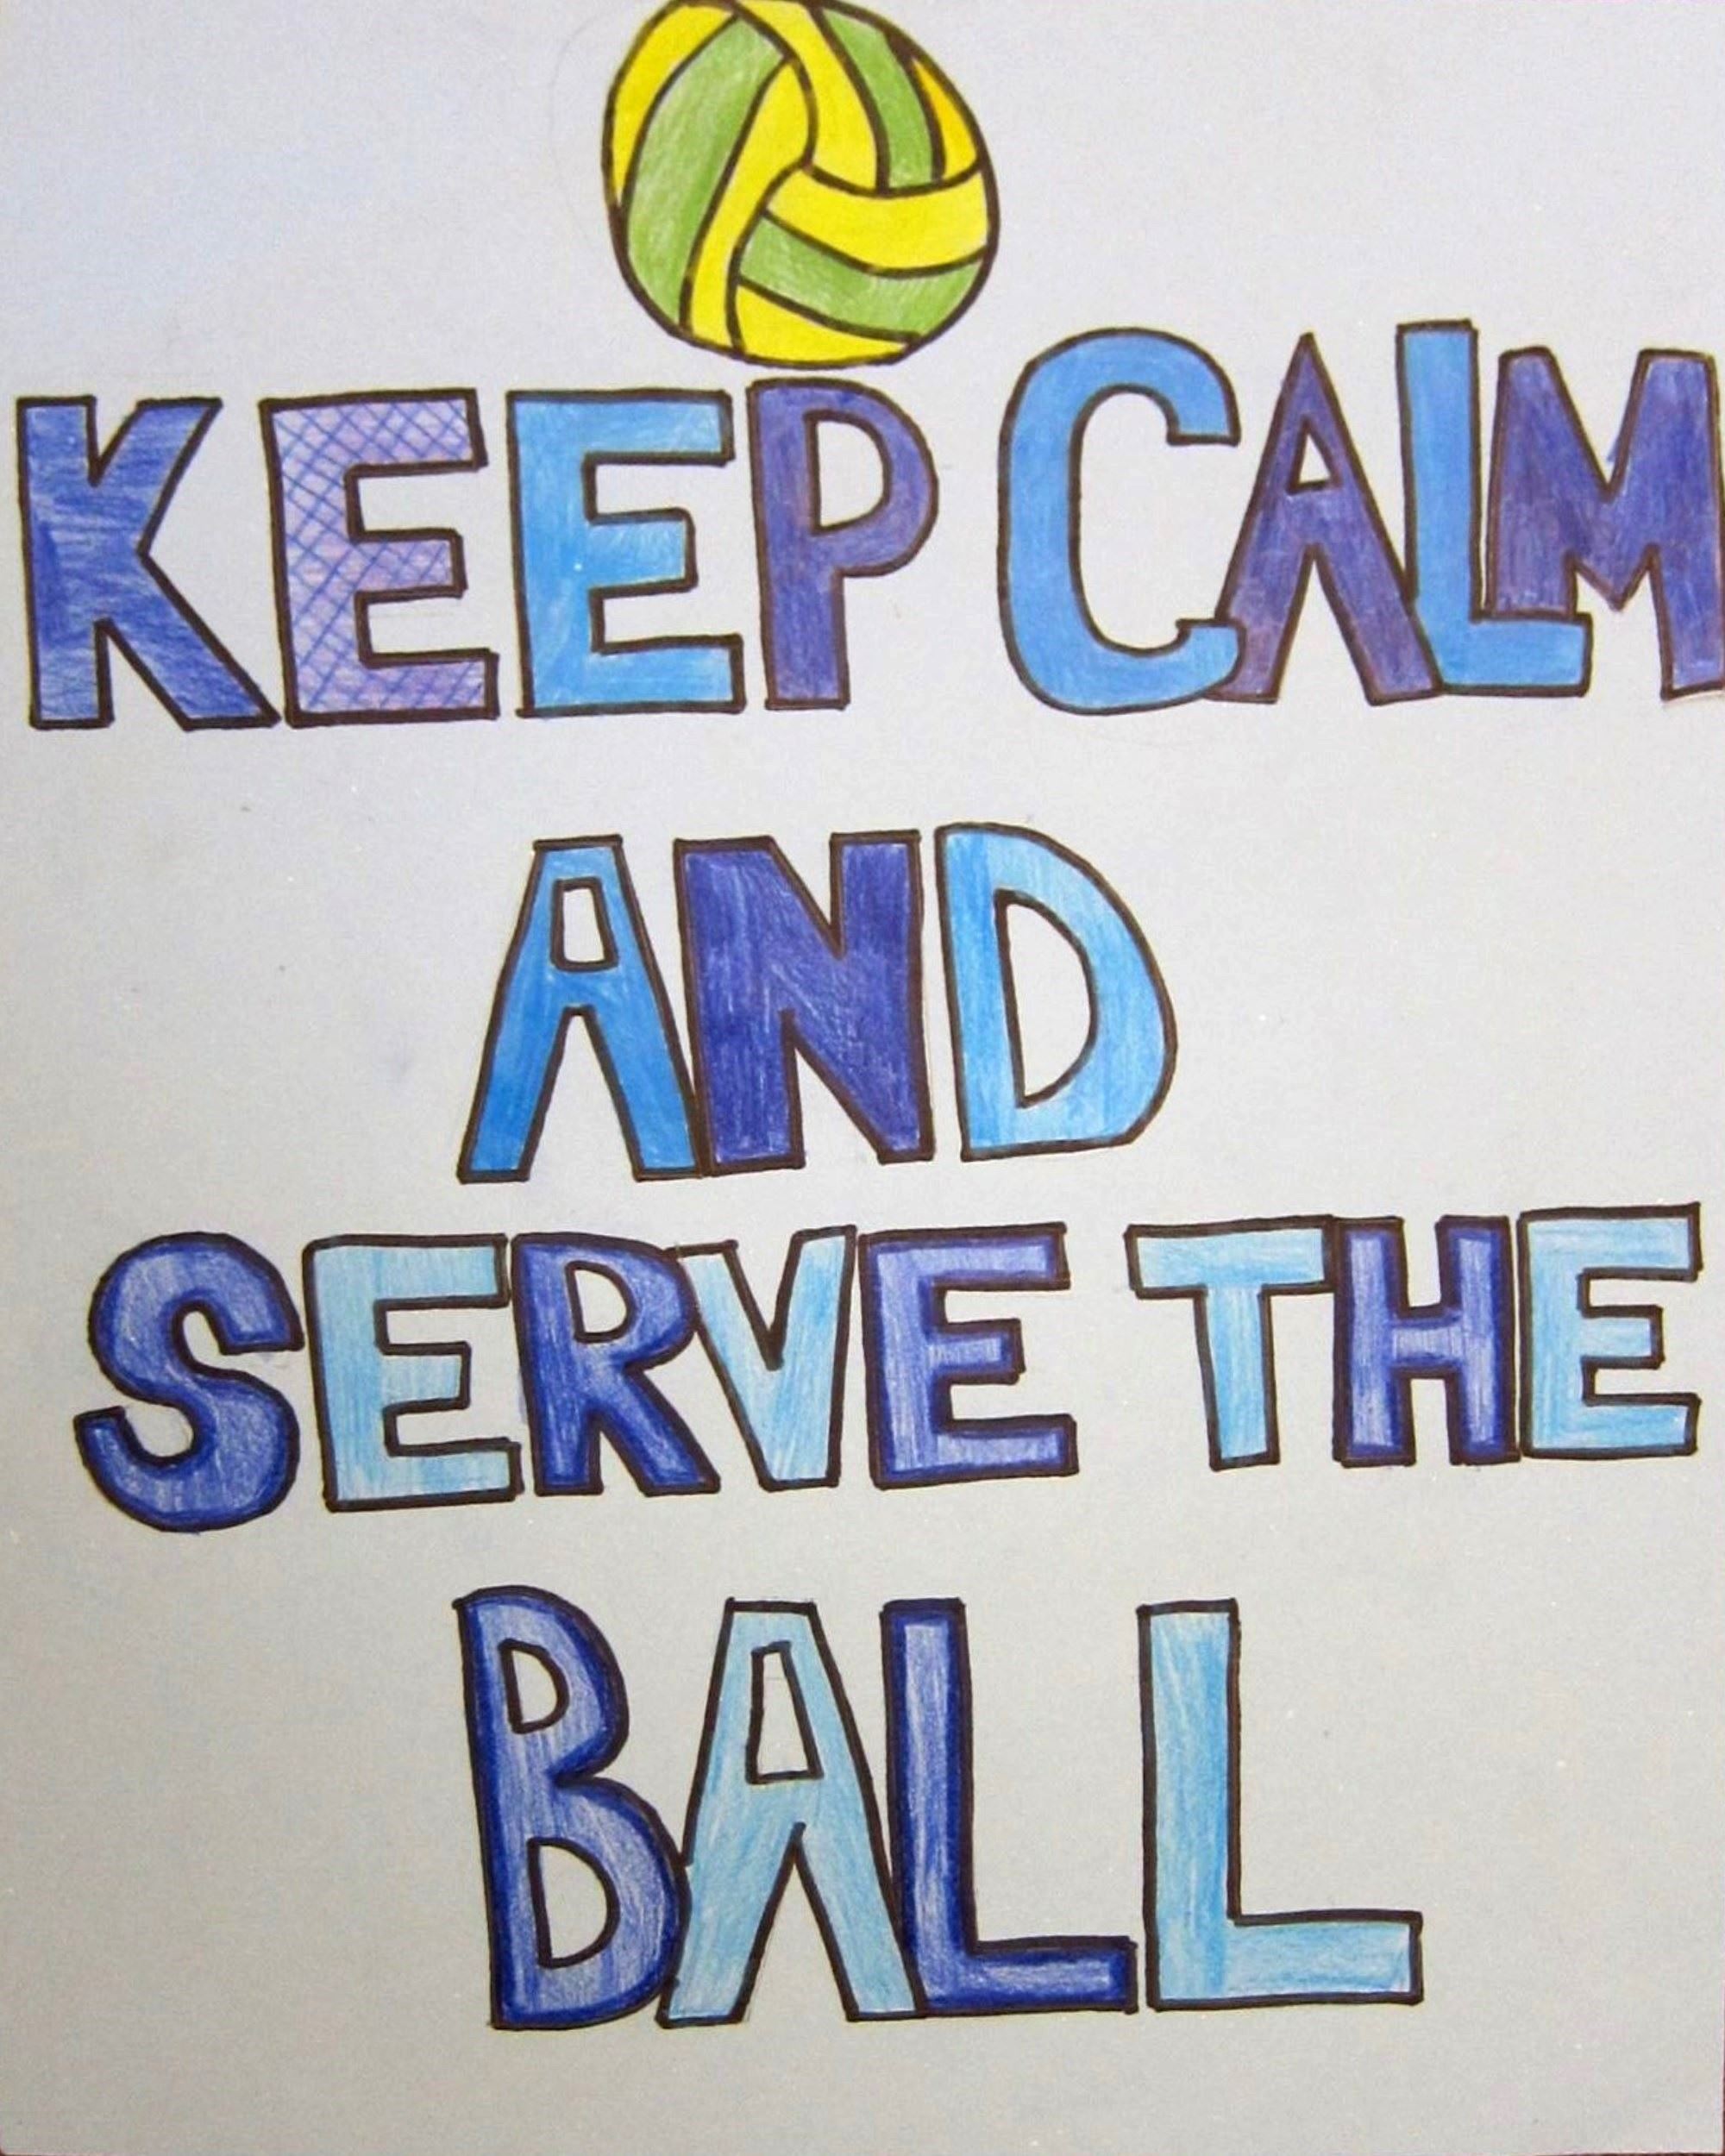 KEEP CALM
AND
SERVE THE
BALL